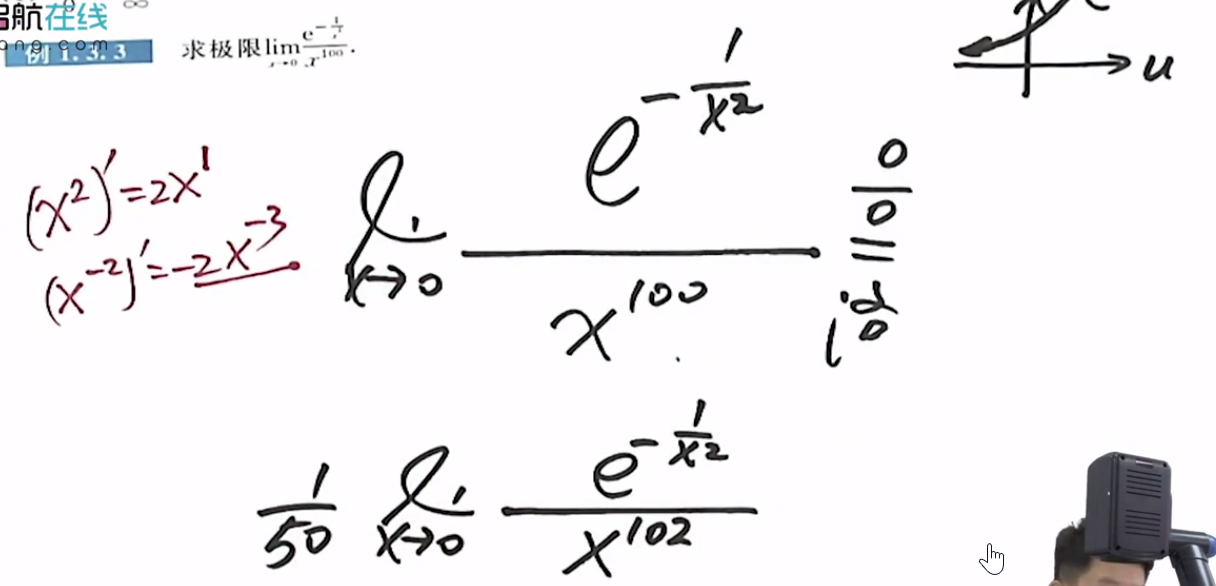 启航在线 0 ∞
ang.com
例 1.3.3 求极限 lim x→0 e^{-1/x²}/x^{100}.
u
(x²)' = 2x¹
(x⁻²)' = -2x⁻³
lim x→0 e^{-1/x²}/x^{100} 0/0 =
1/50 lim x→0 e^{-1/x²}/x^{102}